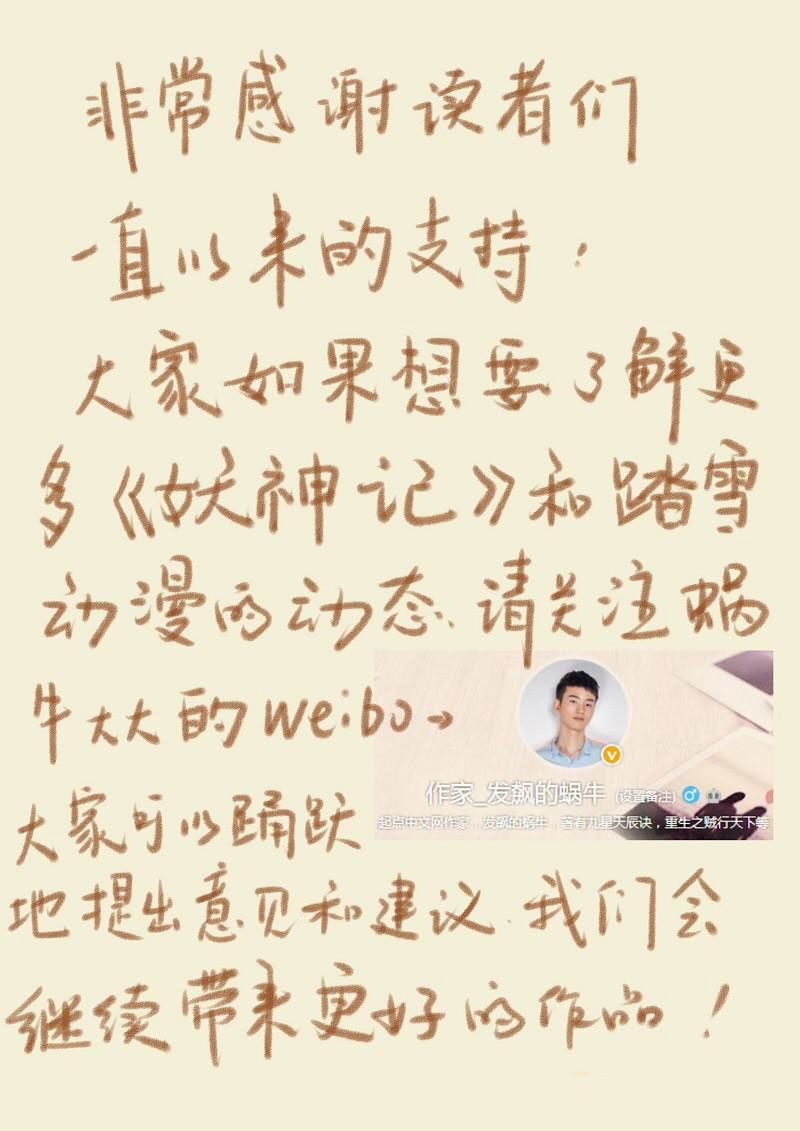 非常感谢读者们
一直以来的支持！
大家如果想要了鲜更
多《妖神记》和踏雪
动漫的动态、请关注蜗
牛大大的weibo→
作家_发飙的蜗牛 (设置备注)
起点中文网作家，发飙的蜗牛，著有九星天辰诀，重生之贼行天下等
大家可以踊跃
地提出意见和建议．我们会
继续带来更好的作品！